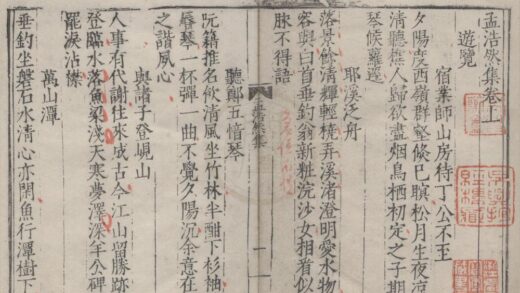 孟浩然集卷上
遊覽
宿業師山房待丁公不至
夕陽度西嶺群壑倐巳暝松月生夜涼
清聽樵人歸欲盡烟鳥栖初定之子期
琴候蘿逕
耶溪泛舟
落景餘清輝輕橈弄溪渚澄明愛水物
容與白首垂釣翁新粧浣沙女相看似
脉不得語
孟浩然集
一
聽鄭五愔琴
阮籍推名飲清風坐竹林半酣下衫袖
辱琴一杯彈一曲不覺夕陽沉余意在
之諧夙心
與諸子登峴山
人事有代謝往來成古今江山留勝跡
登臨水落魚梁淺天寒夢澤深羊公碑
罷淚沾襟
萬山潭
垂釣坐磐石水清心亦閑魚行潭樹下